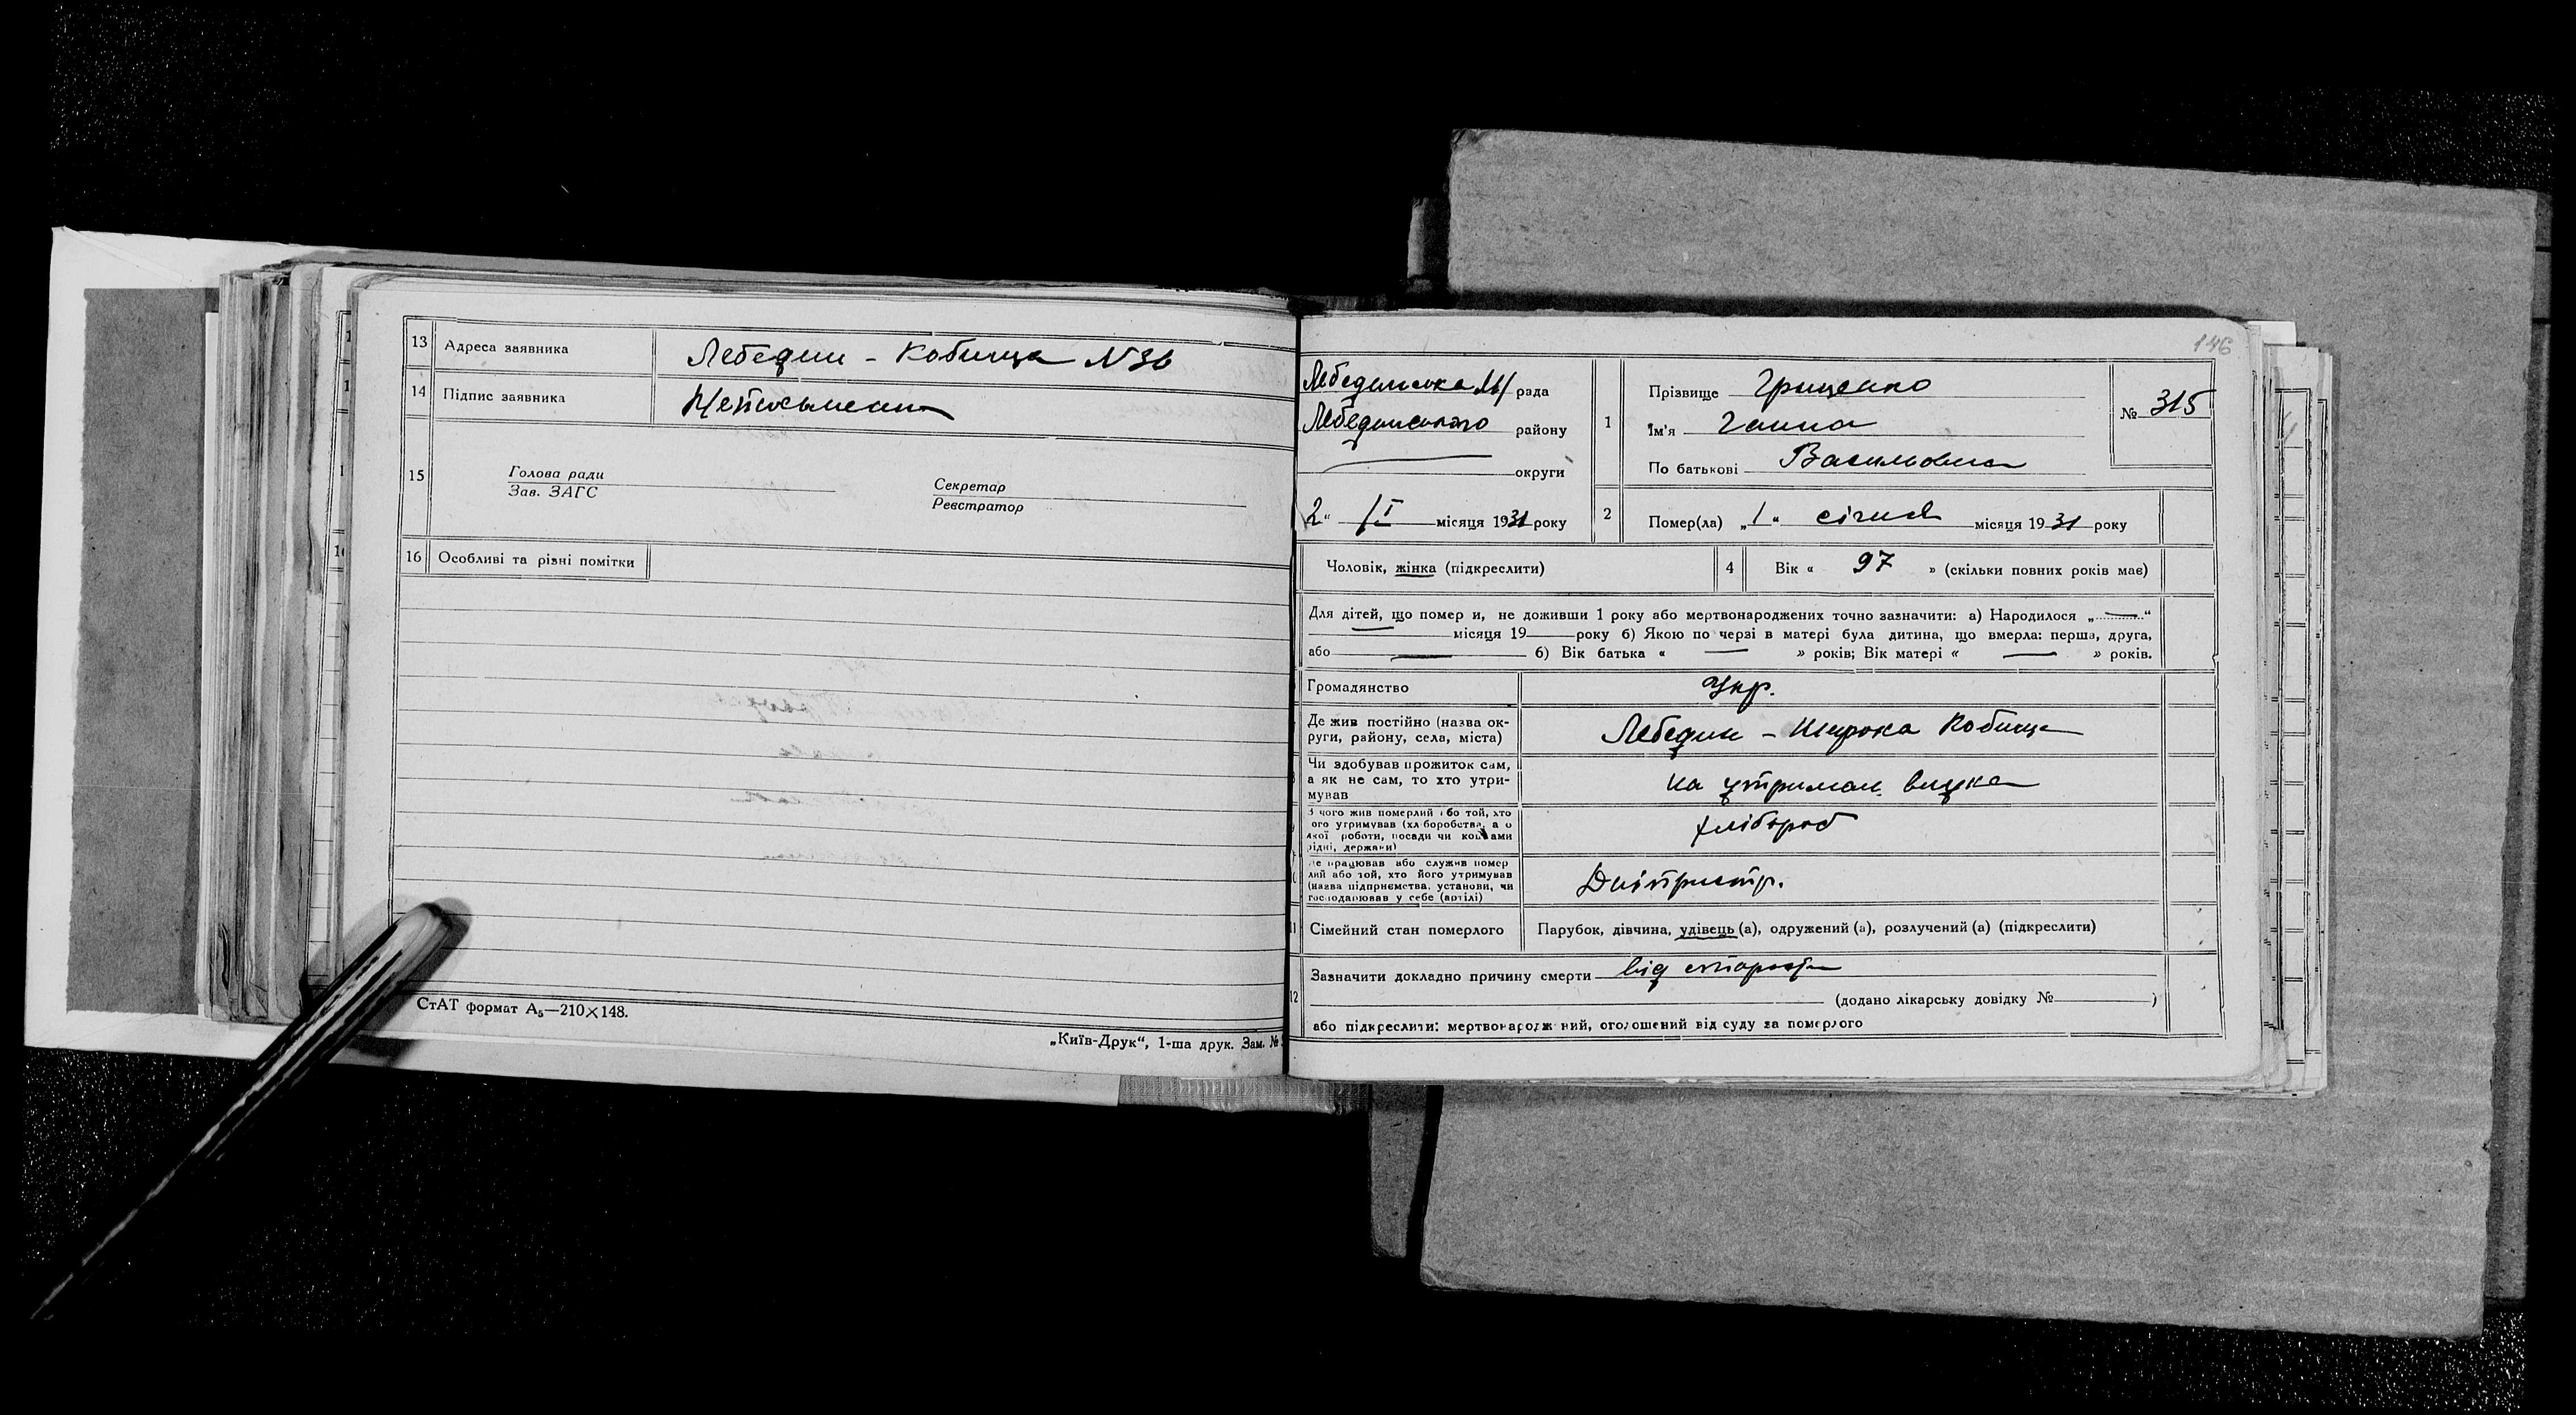 13 Адреса заявника Лебедин - Кобища N 36
14 Підпис заявника Неписьменна
15 Голова ради
Зав. ЗАГС
Секретар
Реєстратор
16 Особливі та різні помітки
СтАТ формат А5—210×148.
„Київ-Друк“, 1-ша друк. Зам. №
146
Лебединська М/ рада
Лебединського району
округи
2“ /I місяця 1931 року
1 Прізвище Грищенко
Ім'я Ганна
По батькові Василовна
№ 315
2 Помер(ла) „1“ січня місяця 1931 року
Чоловік, жінка (підкреслити)
4 Вік « 97 » (скільки повних років має)
Для дітей, що помер и, не доживши 1 року або мертвонароджених точно зазначити: а) Народилося „—“
— місяця 19— року б) Якою по черзі в матері була дитина, що вмерла: перша, друга,
або — б) Вік батька « — » років; Вік матері « — » років.
Громадянство Укр.
Де жив постійно (назва ок-
руги, району, села, міста) Лебедин - Широка Кобища
Чи здобував прожиток сам,
а як не сам, то хто утри-
мував на утриман. внука
З чого жив померлий або той, хто
ого утримував (хл боробства, а о
якої роботи, посади чи коштами
рідні, держави) хлібороб
де працював або служив помер
лий або той, хто його утримував
(назва підприємства, установи, чи
господарював у себе (артілі)
11 Сімейний стан померлого Парубок, дівчина, удівець (а), одружений (а), розлучений (а) (підкреслити)
12 Зазначити докладно причину смерти від старости
(додано лікарську довідку № )
або підкреслити: мертвонародж ний, оголошений від суду за померлого